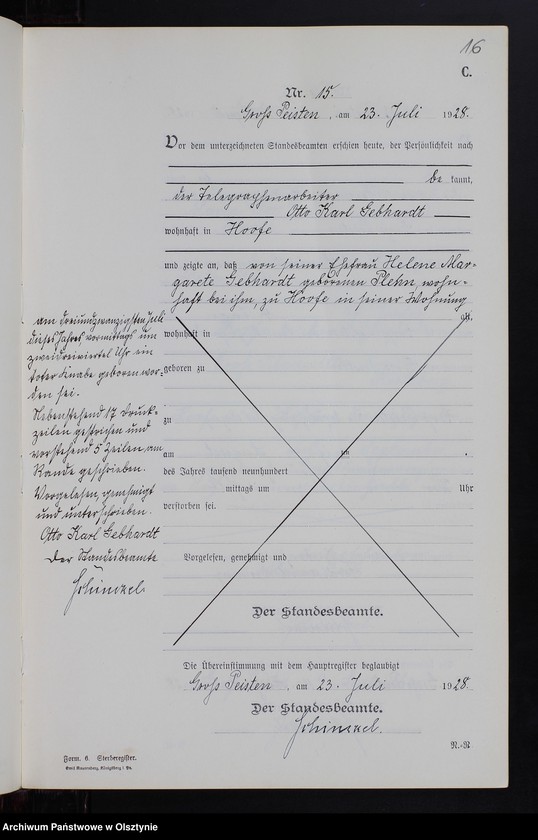 16
C.
Nr. 15.
Groß Peisten, am 23. Juli 1928.
Vor dem unterzeichneten Standesbeamten erschien heute, der Persönlichkeit nach
be kannt,
der Telegraphenarbeiter
Otto Karl Gebhardt
wohnhaft in Hoofe
und zeigte an, daß von seiner Ehefrau Helene Mar-
garete Gebhardt geborenen Plehn, wohn-
haft bei ihm, zu Hoofe in seiner Wohnung
am dreiundzwanzigsten Juli
dieses Jahres, vormittags um
zweidreiviertel Uhr ein
toter Knabe geboren wor-
den sei.
Nebenstehend 17 Druck-
zeilen gestrichen und
vorstehend 5 Zeilen am
Rande geschrieben.
Vorgelesen, genehmigt
und unterschrieben.
Otto Karl Gebhardt
Der Standesbeamte
Schinkel.
alt,
wohnhaft in
geboren zu
zu
am um .
des Jahres tausend neunhundert
mittags um Uhr
verstorben sei.
Vorgelesen, genehmigt und
Der Standesbeamte.
Die Übereinstimmung mit dem Hauptregister beglaubigt
Groß Peisten, am 23. Juli 1928.
Der Standesbeamte.
Schinkel.
R.-R
Form. 6. Sterberegister.
Archiwum Państwowe w Olsztynie